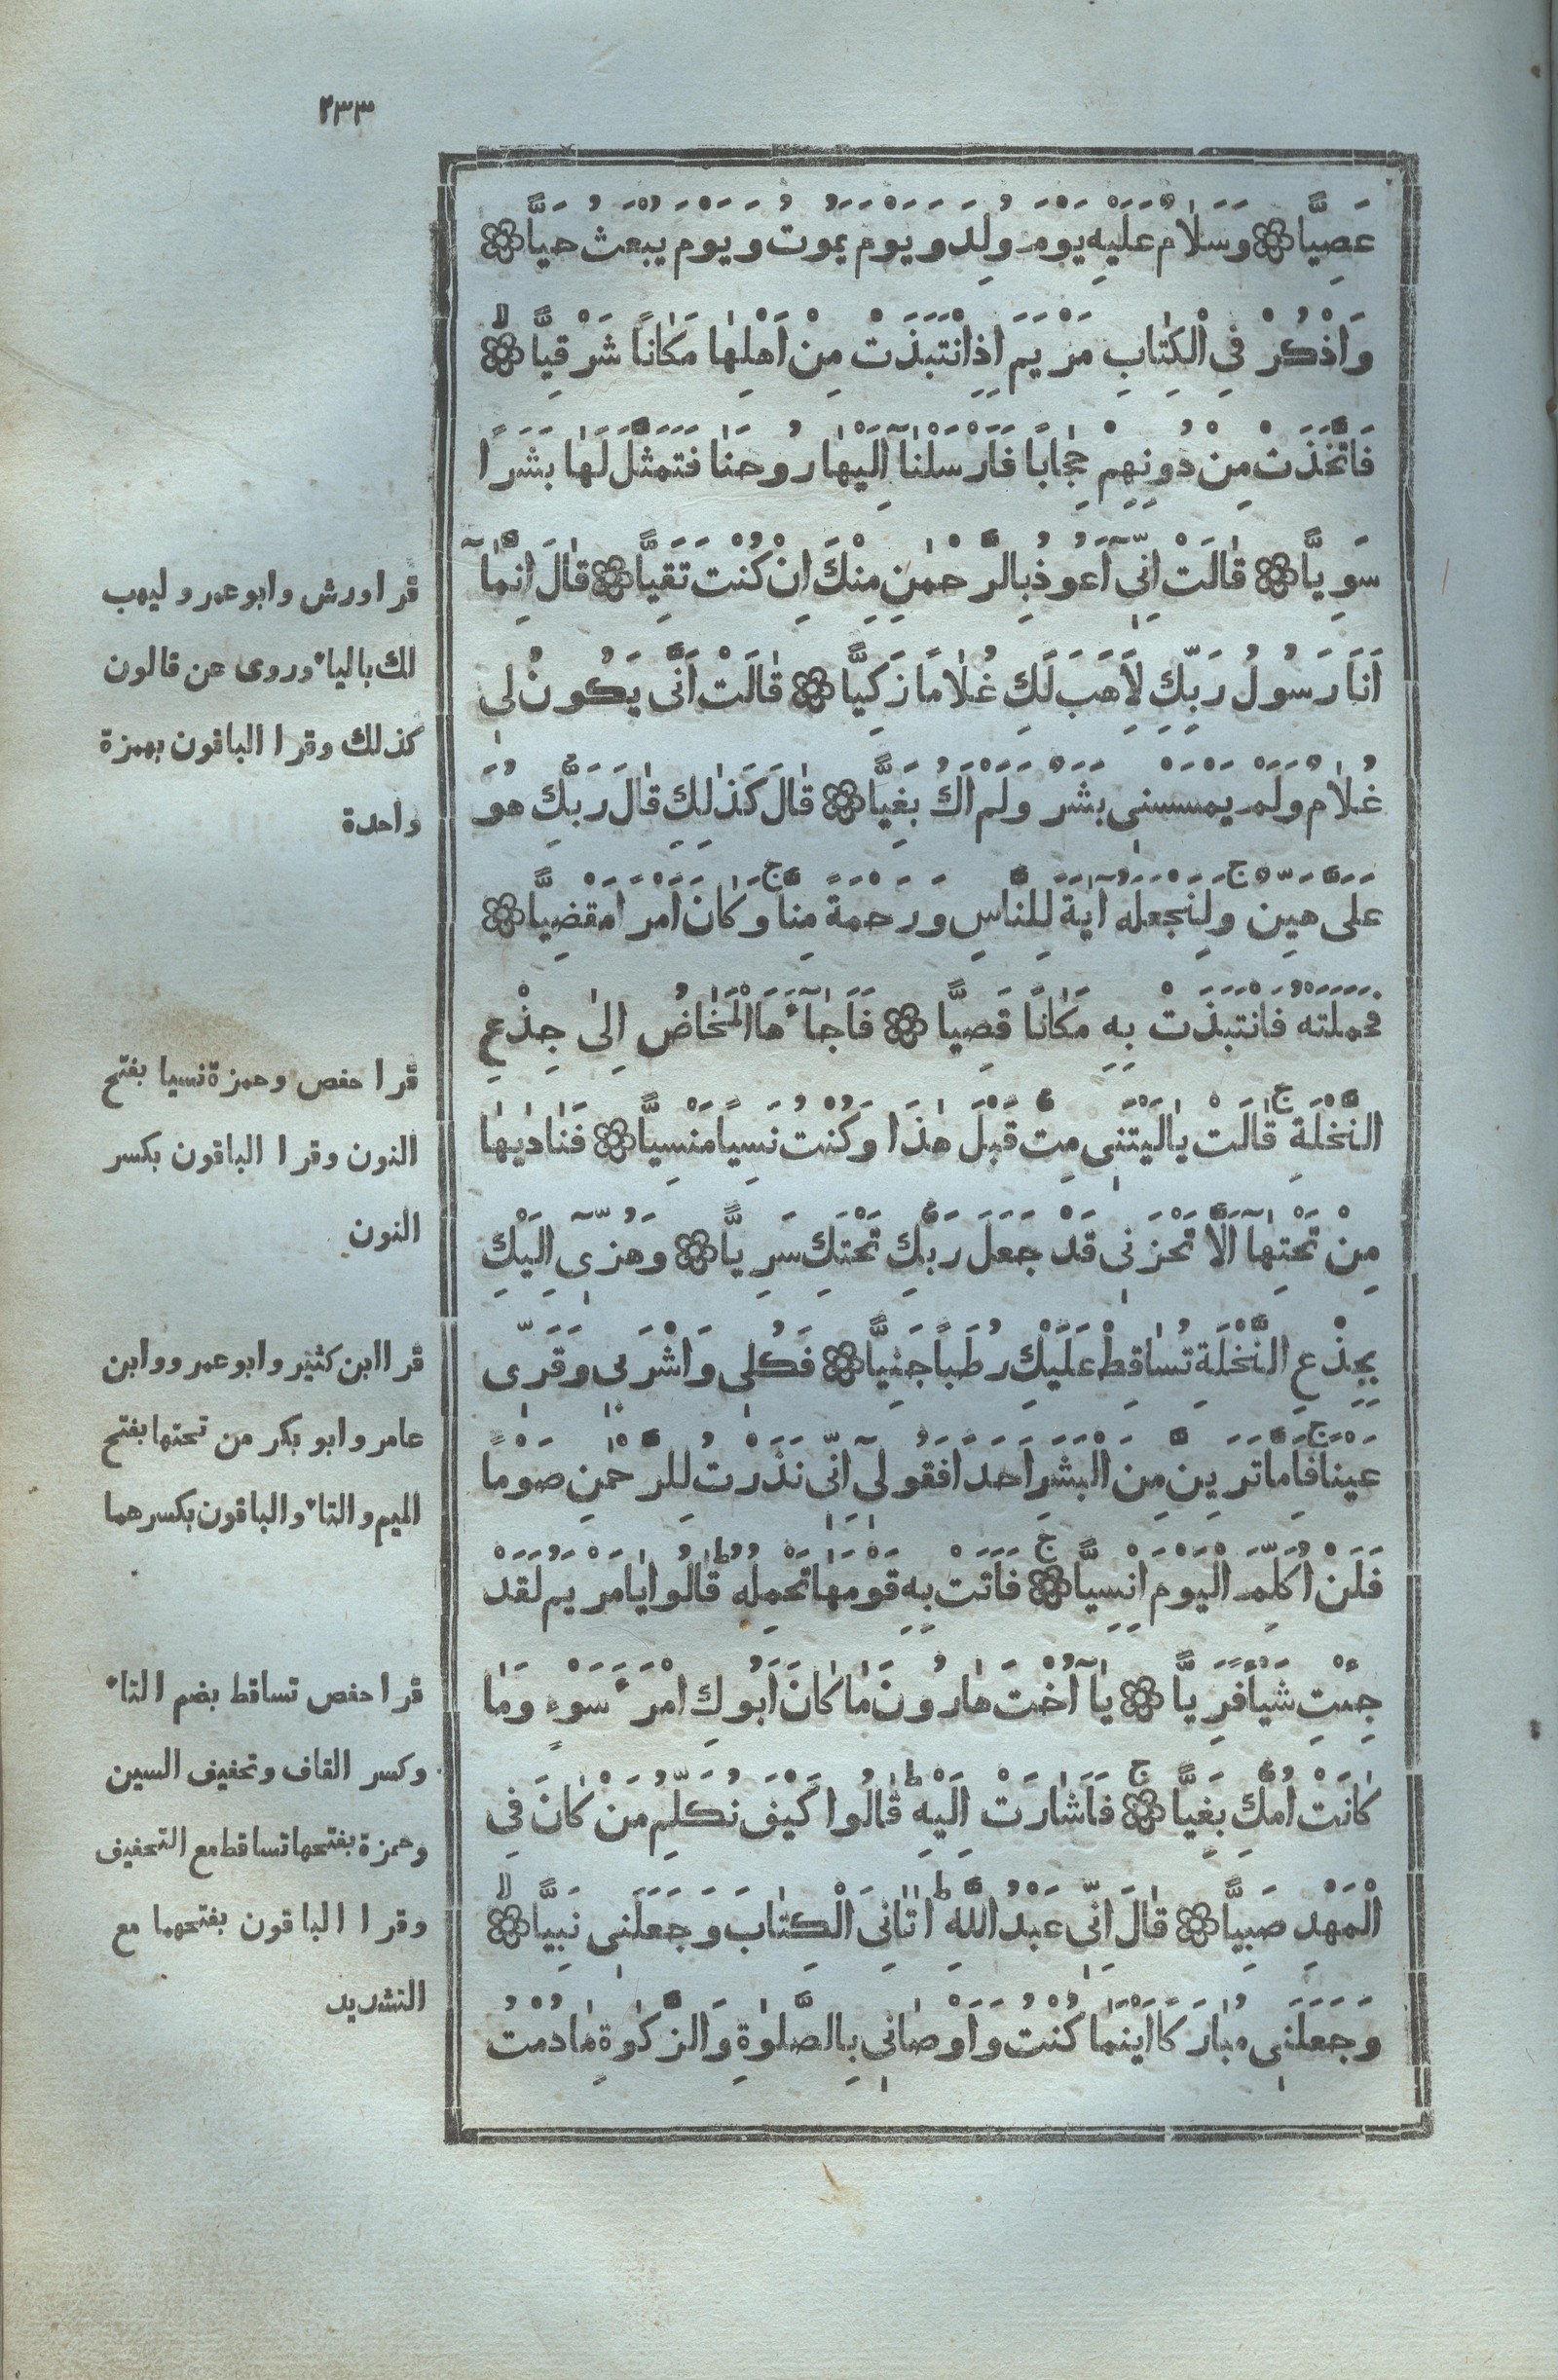 ٢٣٣
عَصِيًّا ۞ وَسَلَامٌ عَلَيْهِ يَوْمَ وُلِدَ وَيَوْمَ يَمُوتُ وَيَوْمَ يُبْعَثُ حَيًّا ۞
وَاذْكُرْ فِي الْكِتَابِ مَرْيَمَ اِذِ انْتَبَذَتْ مِنْ اَهْلِهَا مَكَانًا شَرْقِيًّا ۞
فَاتَّخَذَتْ مِنْ دُونِهِمْ حِجَابًا فَاَرْسَلْنَآ اِلَيْهَا رُوحَنَا فَتَمَثَّلَ لَهَا بَشَرًا
سَوِيًّا ۞ قَالَتْ اِنِّىٓ اَعُوذُ بِالرَّحْمٰنِ مِنْكَ اِنْ كُنْتَ تَقِيًّا ۞ قَالَ اِنَّمَآ
اَنَا رَسُولُ رَبِّكِ لِاَهَبَ لَكِ غُلَامًا زَكِيًّا ۞ قَالَتْ اَنّٰى يَكُونُ لِى
غُلَامٌ وَلَمْ يَمْسَسْنِى بَشَرٌ وَلَمْ اَكُ بَغِيًّا ۞ قَالَ كَذٰلِكِ قَالَ رَبُّكِ هُوَ
عَلَىَّ هَيِّنٌ ج وَلِنَجْعَلَهُ اٰيَةً لِلنَّاسِ وَرَحْمَةً مِنَّا ج وَكَانَ اَمْرًا مَقْضِيًّا ۞
فَحَمَلَتْهُ فَانْتَبَذَتْ بِهِ مَكَانًا قَصِيًّا ۞ فَاَجَآءَهَا الْمَخَاضُ اِلٰى جِذْعِ
النَّخْلَةِ ج قَالَتْ يَالَيْتَنِى مِتُّ قَبْلَ هٰذَا وَكُنْتُ نَسِيًا مَنْسِيًّا ۞ فَنَادٰيهَا
مِنْ تَحْتِهَآ اَلَّا تَحْزَنِى قَدْ جَعَلَ رَبُّكِ تَحْتَكِ سَرِيًّا ۞ وَهُزِّىٓ اِلَيْكِ
بِجِذْعِ النَّخْلَةِ تُسَاقِطْ عَلَيْكِ رُطَبًا جَنِيًّا ۞ فَكُلِى وَاشْرَبِى وَقَرِّى
عَيْنًا ج فَاِمَّا تَرَيِنَّ مِنَ الْبَشَرِ اَحَدًا فَقُولِىٓ اِنِّى نَذَرْتُ لِلرَّحْمٰنِ صَوْمًا
فَلَنْ اُكَلِّمَ الْيَوْمَ اِنْسِيًّا ج ۞ فَاَتَتْ بِهِ قَوْمَهَا تَحْمِلُهُ ط قَالُوا يَامَرْيَمُ لَقَدْ
جِئْتِ شَيْأً فَرِيًّا ۞ يَآ اُخْتَ هَارُونَ مَا كَانَ اَبُوكِ امْرَءَ سَوْءٍ وَمَا
كَانَتْ اُمُّكِ بَغِيًّا ج ۞ فَاَشَارَتْ اِلَيْهِ ط قَالُوا كَيْفَ نُكَلِّمُ مَنْ كَانَ فِى
الْمَهْدِ صَبِيًّا ۞ قَالَ اِنِّى عَبْدُ اللّٰهِ ط اٰتَانِىَ الْكِتَابَ وَجَعَلَنِى نَبِيًّا ۞
وَجَعَلَنِى مُبَارَكًا اَيْنَمَا كُنْتُ وَاَوْصَانِى بِالصَّلٰوةِ وَالزَّكٰوةِ مَا دُمْتُ
قرا ورش وابو عمرو ليهب
لك بالياء وروى عن قالون
كذلك وقرا الباقون بهمزة
واحدة
قرا حفص وحمزة نسيا بفتح
النون وقرا الباقون بكسر
النون
قرا ابن كثير وابو عمرو وابن
عامر وابو بكر من تحتها بفتح
الميم والتاء والباقون بكسرهما
قرا حفص تساقط بضم التاء
وكسر القاف وتخفيف السين
وحمزة بفتحها تساقط مع التخفيف
وقرا الباقون بفتحهما مع
التشديد